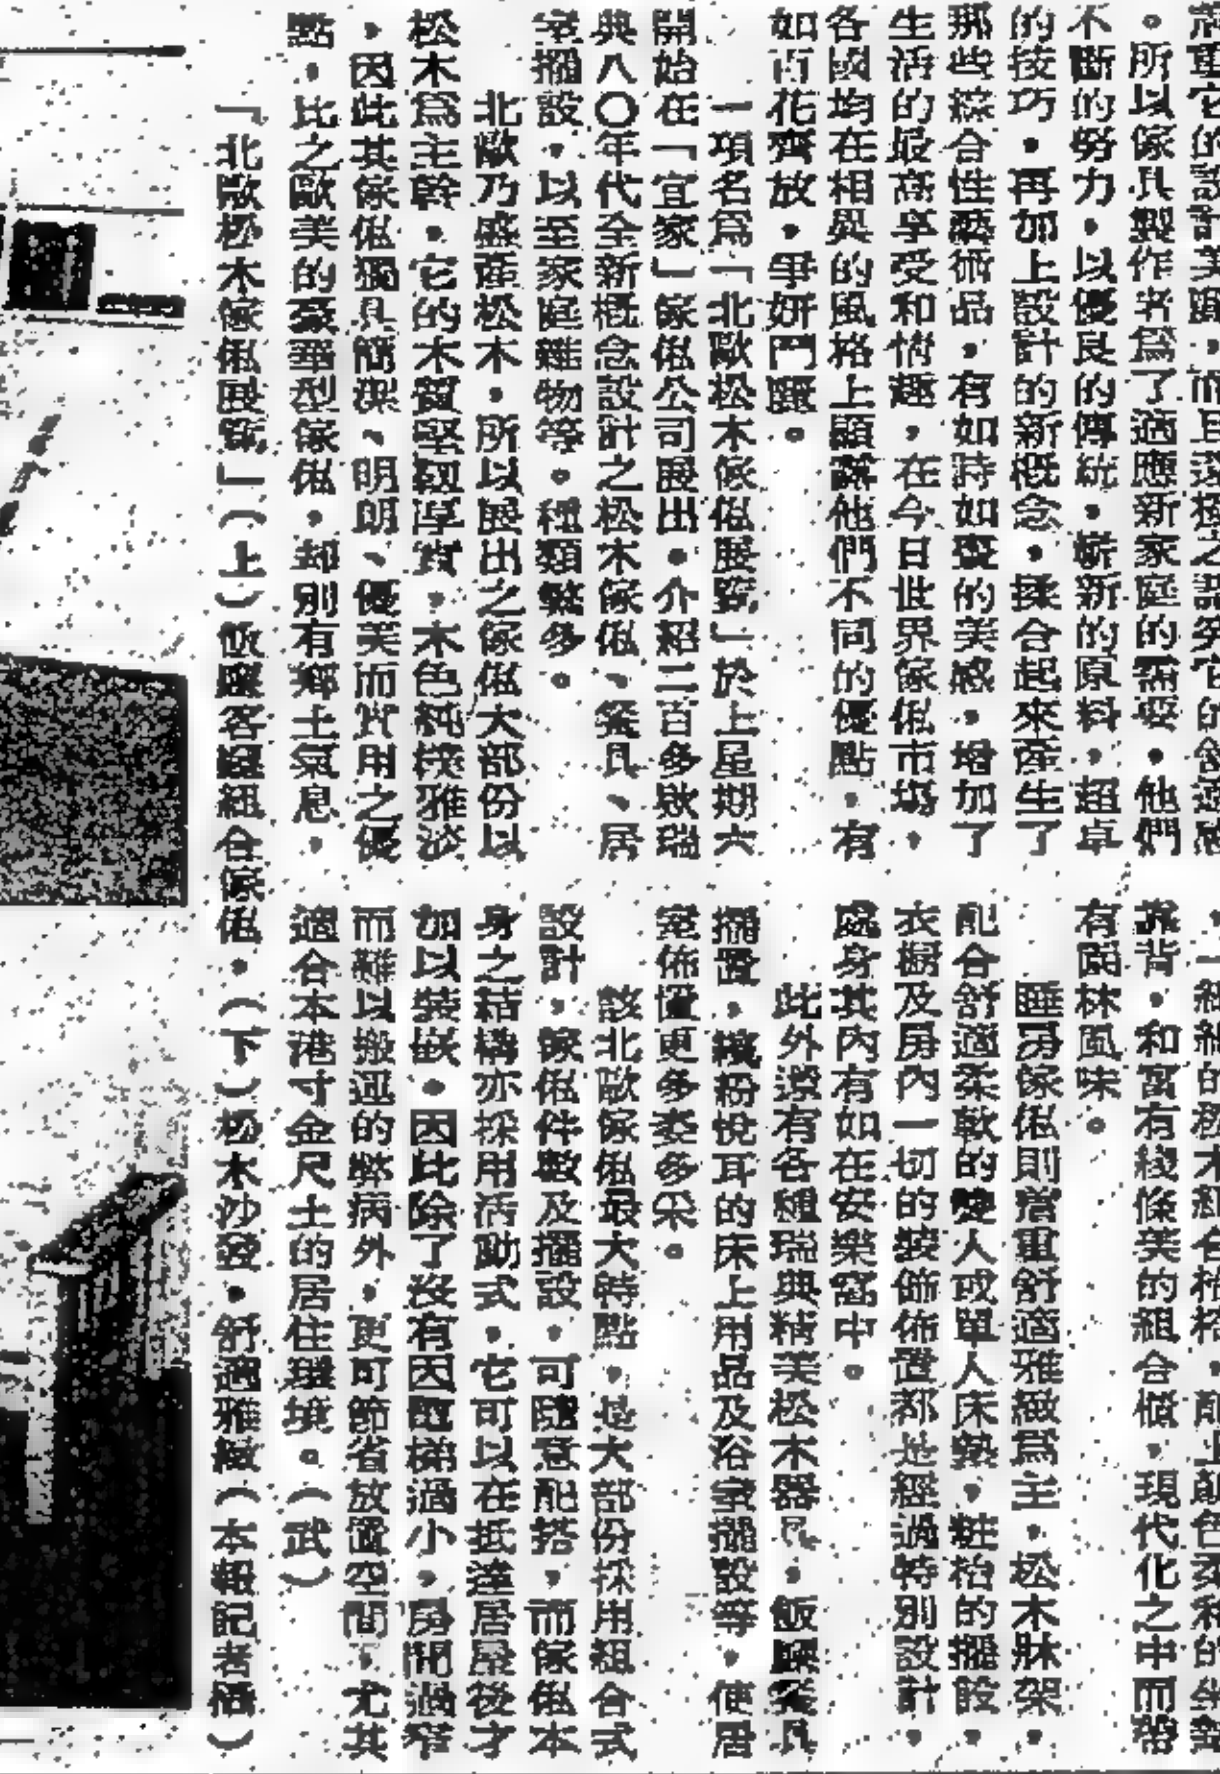 。所以傢具製作者爲了適應新家庭的需要,他們
不斷的努力,以優良的傳統,嶄新的原料,超卓
的技巧,再加上設計的新概念,揉合起來產生了
那些綜合性藝術品,有如時如畫的美感,增加了
生活的最高享受和情趣,在今日世界傢俬市場,
各國均在相與的風格上顯露他們不同的優點,有
如百花齊放,爭妍鬥麗。
一項名爲「北歐松木傢俬展覽」於上星期六
開始在「宜家」傢俬公司展出。介紹二百多款瑞
典八〇年代全新概念設計之松木傢俬、餐具、居
室擺設,以至家庭雜物等。種類繁多。
北歐乃盛產松木,所以展出之傢俬大部份以
松木爲主幹,它的木質堅韌厚實,木色純樸雅淡
,因此其傢俬獨具簡潔、明朗、優美而實用之優
點,比之歐美的豪華型傢俬,却別有鄉土氣息,
靠背,和富有綫條美的組合櫃,現代化之中而略
有園林風味。
睡房傢俬則着重舒適雅緻爲主,松木牀架,
配合舒適柔軟的雙人或單人床墊,粧枱的擺設,
衣櫥及房內一切的裝飾佈置都是經過特別設計,
處身其內有如在安樂窩中。
此外還有各種瑞典精美松木器具,飯廳餐具
擺置,繽紛悅耳的床上用品及浴室擺設等,使居
室佈置更多姿多采。
該北歐傢俬最大特點,是大部份採用組合式
設計,傢俬件數及擺設,可隨意配搭,而傢俬本
身之結構亦採用活動式,它可以在抵達居屋後才
加以裝嵌。因此除了沒有因電梯過小,房間過窄
而難以搬運的弊病外,更可節省放置空間,尤其
適合本港寸金尺土的居住環境。(武)
「北歐松木傢俬展覽」(上)飯廳客廳組合傢俬。(下)松木沙發,舒適雅緻(本報記者攝)